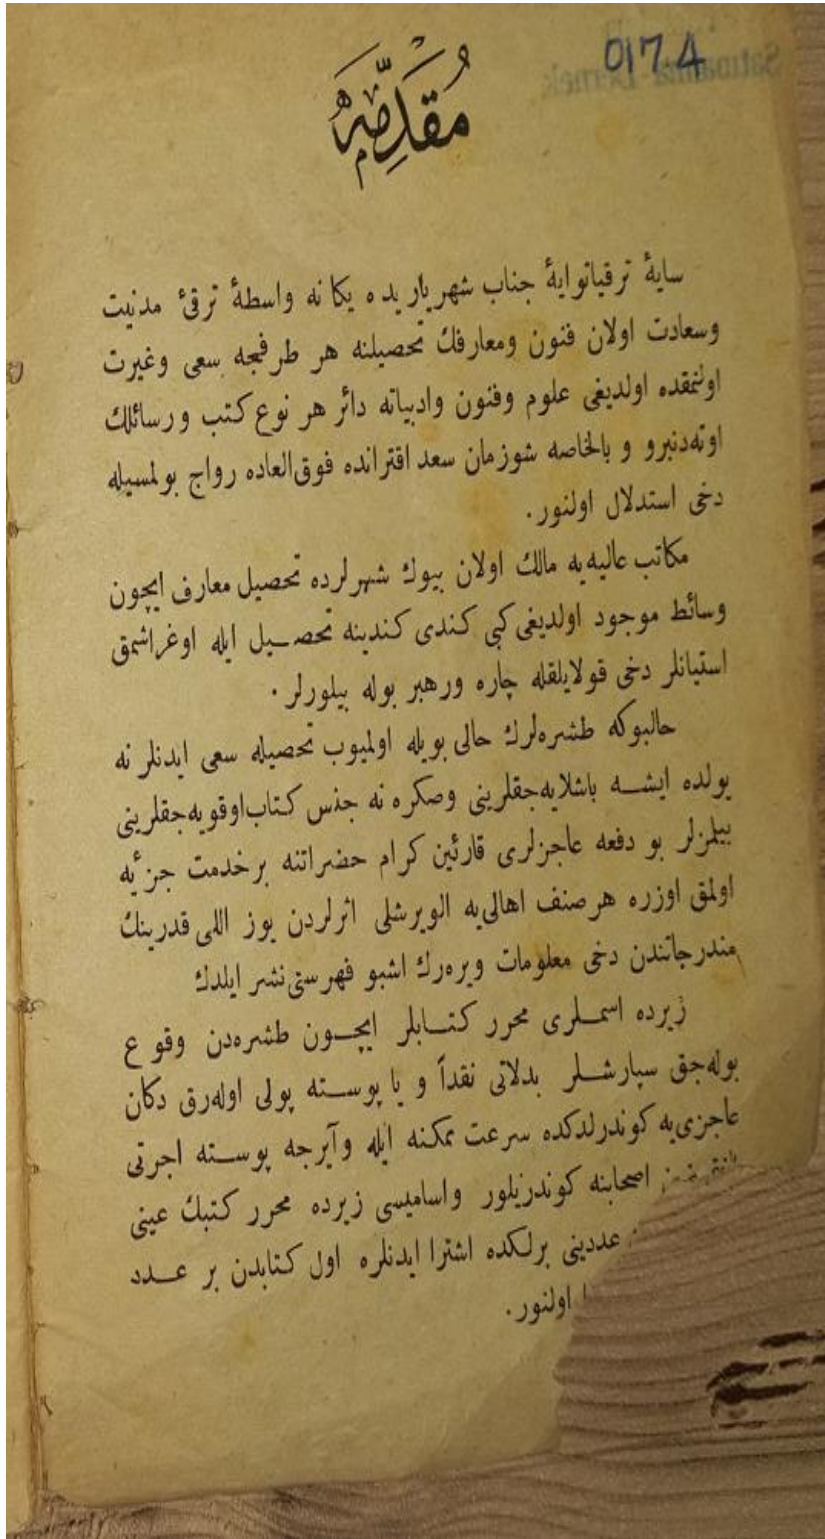 0174
مُقَدِّمَه
سایهٔ ترقیاتوایهٔ جناب شهریاریده یکانه واسطهٔ ترقیٔ مدنیت
وسعادت اولان فنون ومعارفك تحصیلنه هر طرفجه سعی وغیرت
اولنمقده اولدیغی علوم وفنون وادبیاته دائر هر نوع کتب ورسائلك
اوته‌دنبرو و بالخاصه شوزمان سعد اقترانده فوق‌العاده رواج بولمسیله
دخی استدلال اولنور.
مکاتب عالیه‌یه مالك اولان بیوك شهرلرده تحصیل معارف ایچون
وسائط موجود اولدیغی کبی کندی کندینه تحصـیل ایله اوغراشمق
استیانلر دخی قولایلقله چاره ورهبر بوله بیلورلر.
حالبوکه طشره‌لرك حالی بویله اولمیوب تحصیله سعی ایدنلر نه
یولده ایشـه باشلایه‌جقلرینی وصکره نه جنس کتاب اوقویه‌جقلرینی
بیلمزلر بو دفعه عاجزلری قارئین کرام حضراتنه برخدمت جزٔیه
اولمق اوزره هرصنف اهالی‌یه الویرشلی اثرلردن یوز اللی قدرینك
مندرجاتندن دخی معلومات ویره‌رك اشبو فهرستی نشر ایلدك
زیرده اسمـلری محرر کتـابلر ایچـون طشره‌دن وقوع
بوله‌جق سپارشـلر بدلاتی نقداً و یا پوسـته پولی اوله‌رق دکان
عاجزی‌یه کوندرلدکده سرعت ممکنه ایله وآیرجه پوسـته اجرتی
اصحابنه کوندریلور واسامیسی زیرده محرر کتبك عینی
عددینی برلکده اشترا ایدنلره اول کتابدن بر عـدد
اولنور.